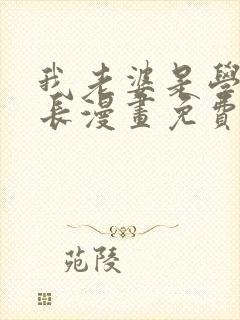 我老婆是學
長漫畫免費
苑陵